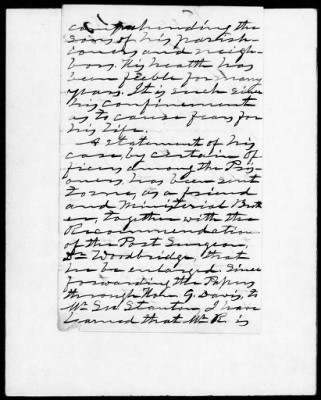 comprehending the
sons of his parish-
ioners and neigh-
bors. His health has
been feeble for many
years. It is such since
his confinement
as to cause fears for
his life.
A statement of his
case, by certain of
ficers among the Pris-
oners, has been sent
to me, as a friend
and Ministerial Broth
er, together with the
Recommendation
of the Post Surgeon,
Dr Woodbridge, that
he be enlarged. Since
forwarding the Papers
through Hon. G. Davis, to
Mr Sec Stanton I have
learned that Mr R. is